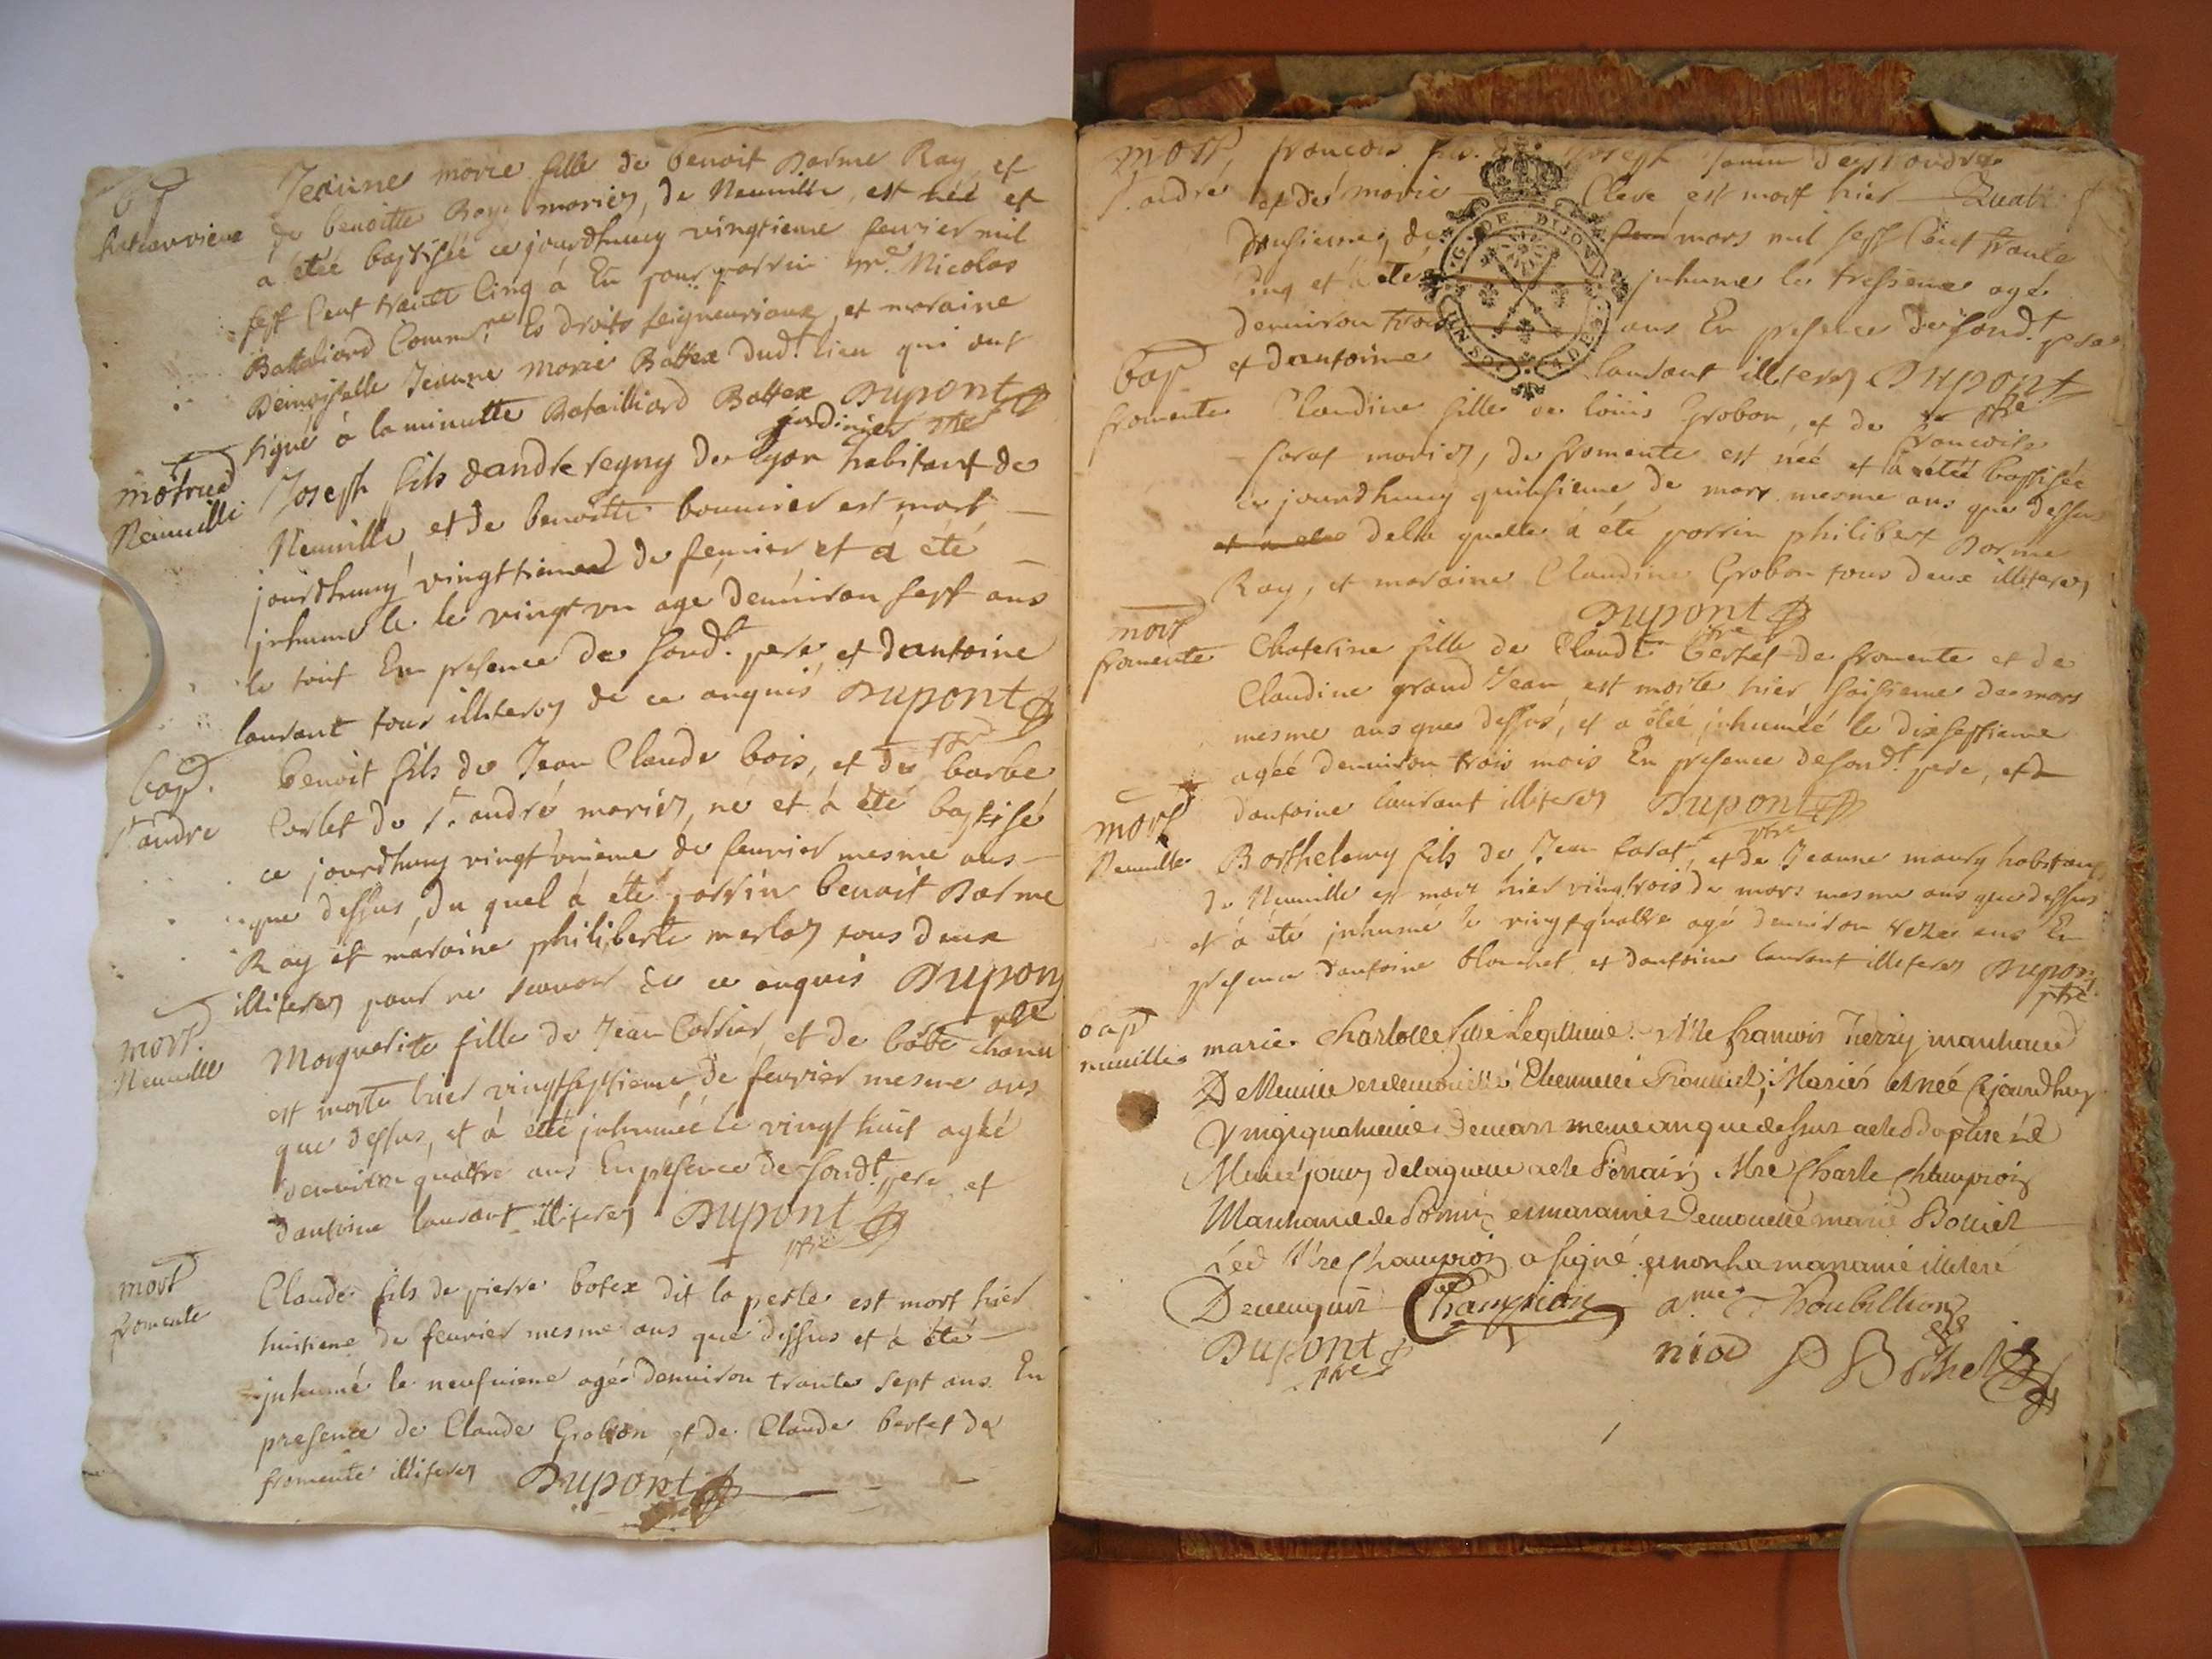 Jeanne marie fille de benoit Darme Ray et
de benoitte Roy mariez, de Neuville, est néé et
à étéé baptiséé ce jourdhuuy vingtieme fevrier mil
sept Cent trante Cinq à Eu pour parrin mre. Nicolas
Batteliard Commre. Es droits seigneuriaux, et maraine
Demoiselle Jeanne Marie Battex dud. lieu qui ont
signé à la minutte Batailliard Battex Dupont
jardinier ptre
mort
Neuuille
Joseph fils dandré regny de lyon habitant de
Neuuille et de benoitte bouuier est mort
jourdhuuy vingttieme de feurier et à été
jnhumé le le vingt vn agé denuiron sept ans
le tout En presence de sond.t pere et dantoine
laurant tous illiterez de ce anquis Dupont
ptre
bap.
St. andre
benoit fils de Jean Claude bois, et de barbe
Corlet de St. andré mariez, né et à été baptisé
ce jourdhuuy vingt vnieme de feurier mesme ans
que dessus, du quel à été parrin benoit Darme
Ray et maraine philiberte merloz tous deux
illiterez pour ne scauoir de ce anquis Dupont
ptre
mort.
Neuuille
Marguerite fille de Jean Cottier, et de
est morte hier vingtseptieme de feurier mesme ans
que dessus, et à étéé jnhuméé le vingt huit agéé
denuiron quattre ans En presence de sond.t pere et
dantoine laurant illiterez Dupont
ptre
mort
fromente
Claude fils de pierre botex dit la perle est mort hier
huitieme de feurier mesme ans que dessus et à été
jnhumé le neufuieme agé denuiron trante sept ans En
presence de Claude Grobon et de Claude bertet de
fromente illiterez Dupont
mort
St. andré
francois fils de Joseph de St andré
et de marie Cleve est mort hier
dousiemez de mars mil sept Cent trante
Cinq et à été jnhumé le tresieme agé
denuiron trois ans En presence de sond.t pere
et dantoine laurant illiterez Dupont
ptre
bap
fromente
Claudine fille de loüis Grobon, et de francoise
farat mariez, de fromente est néé et à étéé baptiséé
ce jourdhuuy quinsieme de mars mesme ans que dessus
et a ete de la quelle à été parrin philibert Darme
Ray, et maraine Claudine Grobon tous deux illiterez
Dupont
ptre
mort
fromente
Chaterine fille de Claude bertet de fromente et de
Claudine grand Jean est morte hier saisieme de mars
mesme ans que dessus, et a étéé jnhuméé le dixseptieme
agéé denuiron trois mois En presence de sond.t pere, et
dantoine laurant illiterez Dupont
ptre
mort
Neuuille
Barthelemy fils de Jean farat, et de Jeanne maury habitans
de Neuuille est mort hier vingtrois de mars mesme ans que dessus
et à été jnhumé le vingtquattre agé denuiron seze ans En
presence dantoine blanchet et dantoine laurant illiterez Dupont
ptre.
bap
neuuille
marie Charlotte fille Legittime Mre francois Therry marchand
De Neuuille et demoiselle Mariés et néé Cejourdhuy
Vingtquatrieme De mars meme an que dessus a eté baptisé Le
Meme jour, de laquelle a eté Parrain Mre Charle Champion
Marchand de et maraine Demoiselle marie Bollier
Led. Mre Champion a signé et non ha maraine illiteré
De ce enquis Champion
Dupont
ptre